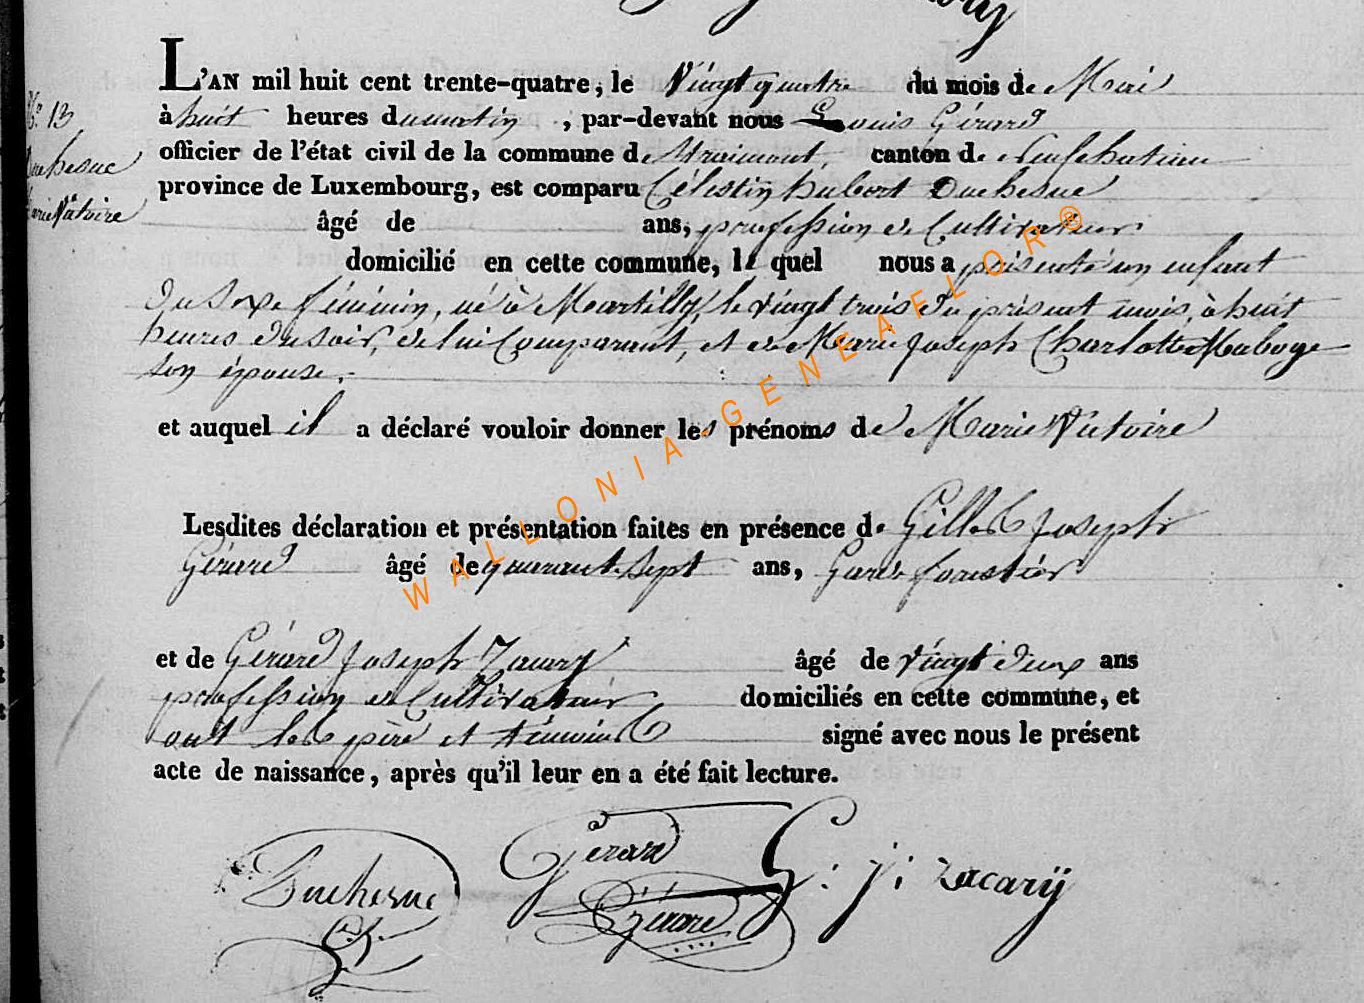 L'AN mil huit cent trente-quatre, le Vingt quatre du mois de Mai
N°. 13
à huit heures du matin, par-devant nous Louis Gérard
Duchesne
officier de l'état civil de la commune de Straimont, canton de Neufchateau
province de Luxembourg, est comparu Célestin hubert Duchesne
Marie Victoire
âgé de ans, profession de Cultivateur
domicilié en cette commune, lequel nous a présenté un enfant
du Sexe féminin, né à Martilly le vingt trois du présent mois, à huit
heures du soir, de lui Comparant, et de Marie Joseph Charlotte Maboge
son épouse.
et auquel il a déclaré vouloir donner les prénoms de Marie Victoire
Lesdites déclaration et présentation faites en présence de Gilles Joseph
Gérard âgé de quarante Sept ans, Garde forestier
et de Gérard Joseph Zacary âgé de vingt deux ans
profession de Cultivateur domiciliés en cette commune, et
ont les père et témoins signé avec nous le présent
acte de naissance, après qu'il leur en a été fait lecture.
Duchesne Gérard G: J: Zacarÿ
Gérard
WALLONIA-GENEAFLOR®